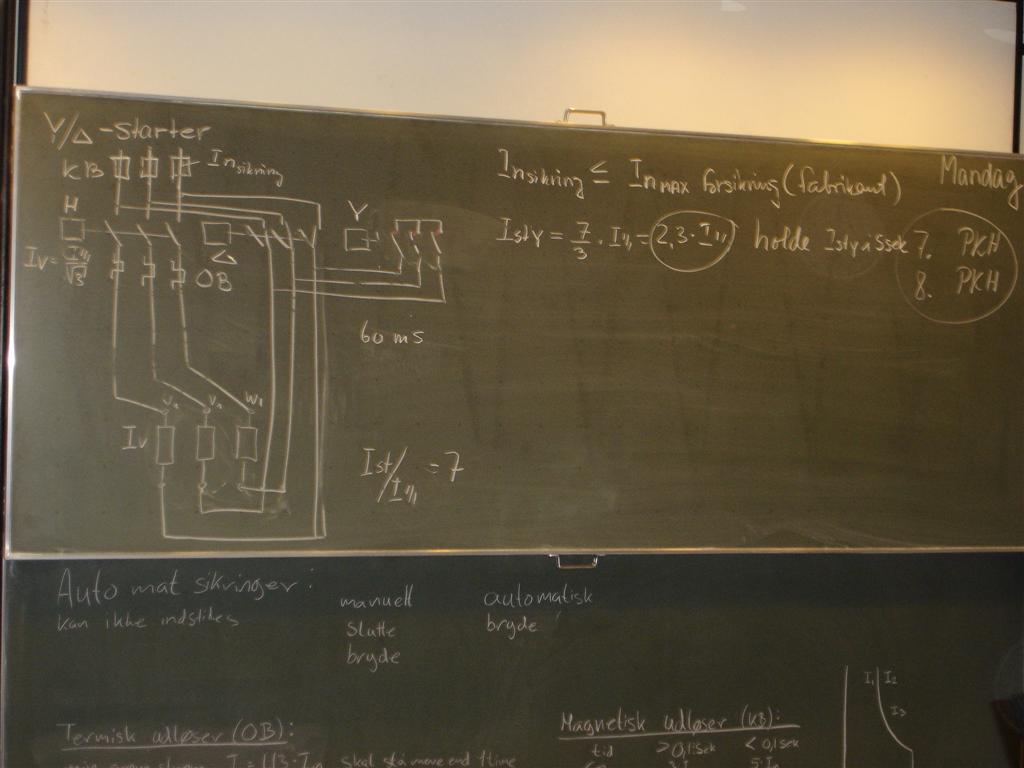 Y/Δ -Starter
KB
In sikring
H
Y
Δ
OB
60 ms
V1
W1
Iv
Ist/I
= 7
In sikring ≤ In MAX forsikring (fabrikant)
Ist Y = 7/3 · I = 2,3 · I holde
Mandag
7. PKH
8. PKH
Automat sikringer:
kan ikke indstilles
manuell
Slutte
bryde
automatisk
bryde
Termisk udløser (OB):
Skal stå mere end 1 time
Magnetisk udløser (KB):
tid > 0,1 sek < 0,1 sek
I1 I2